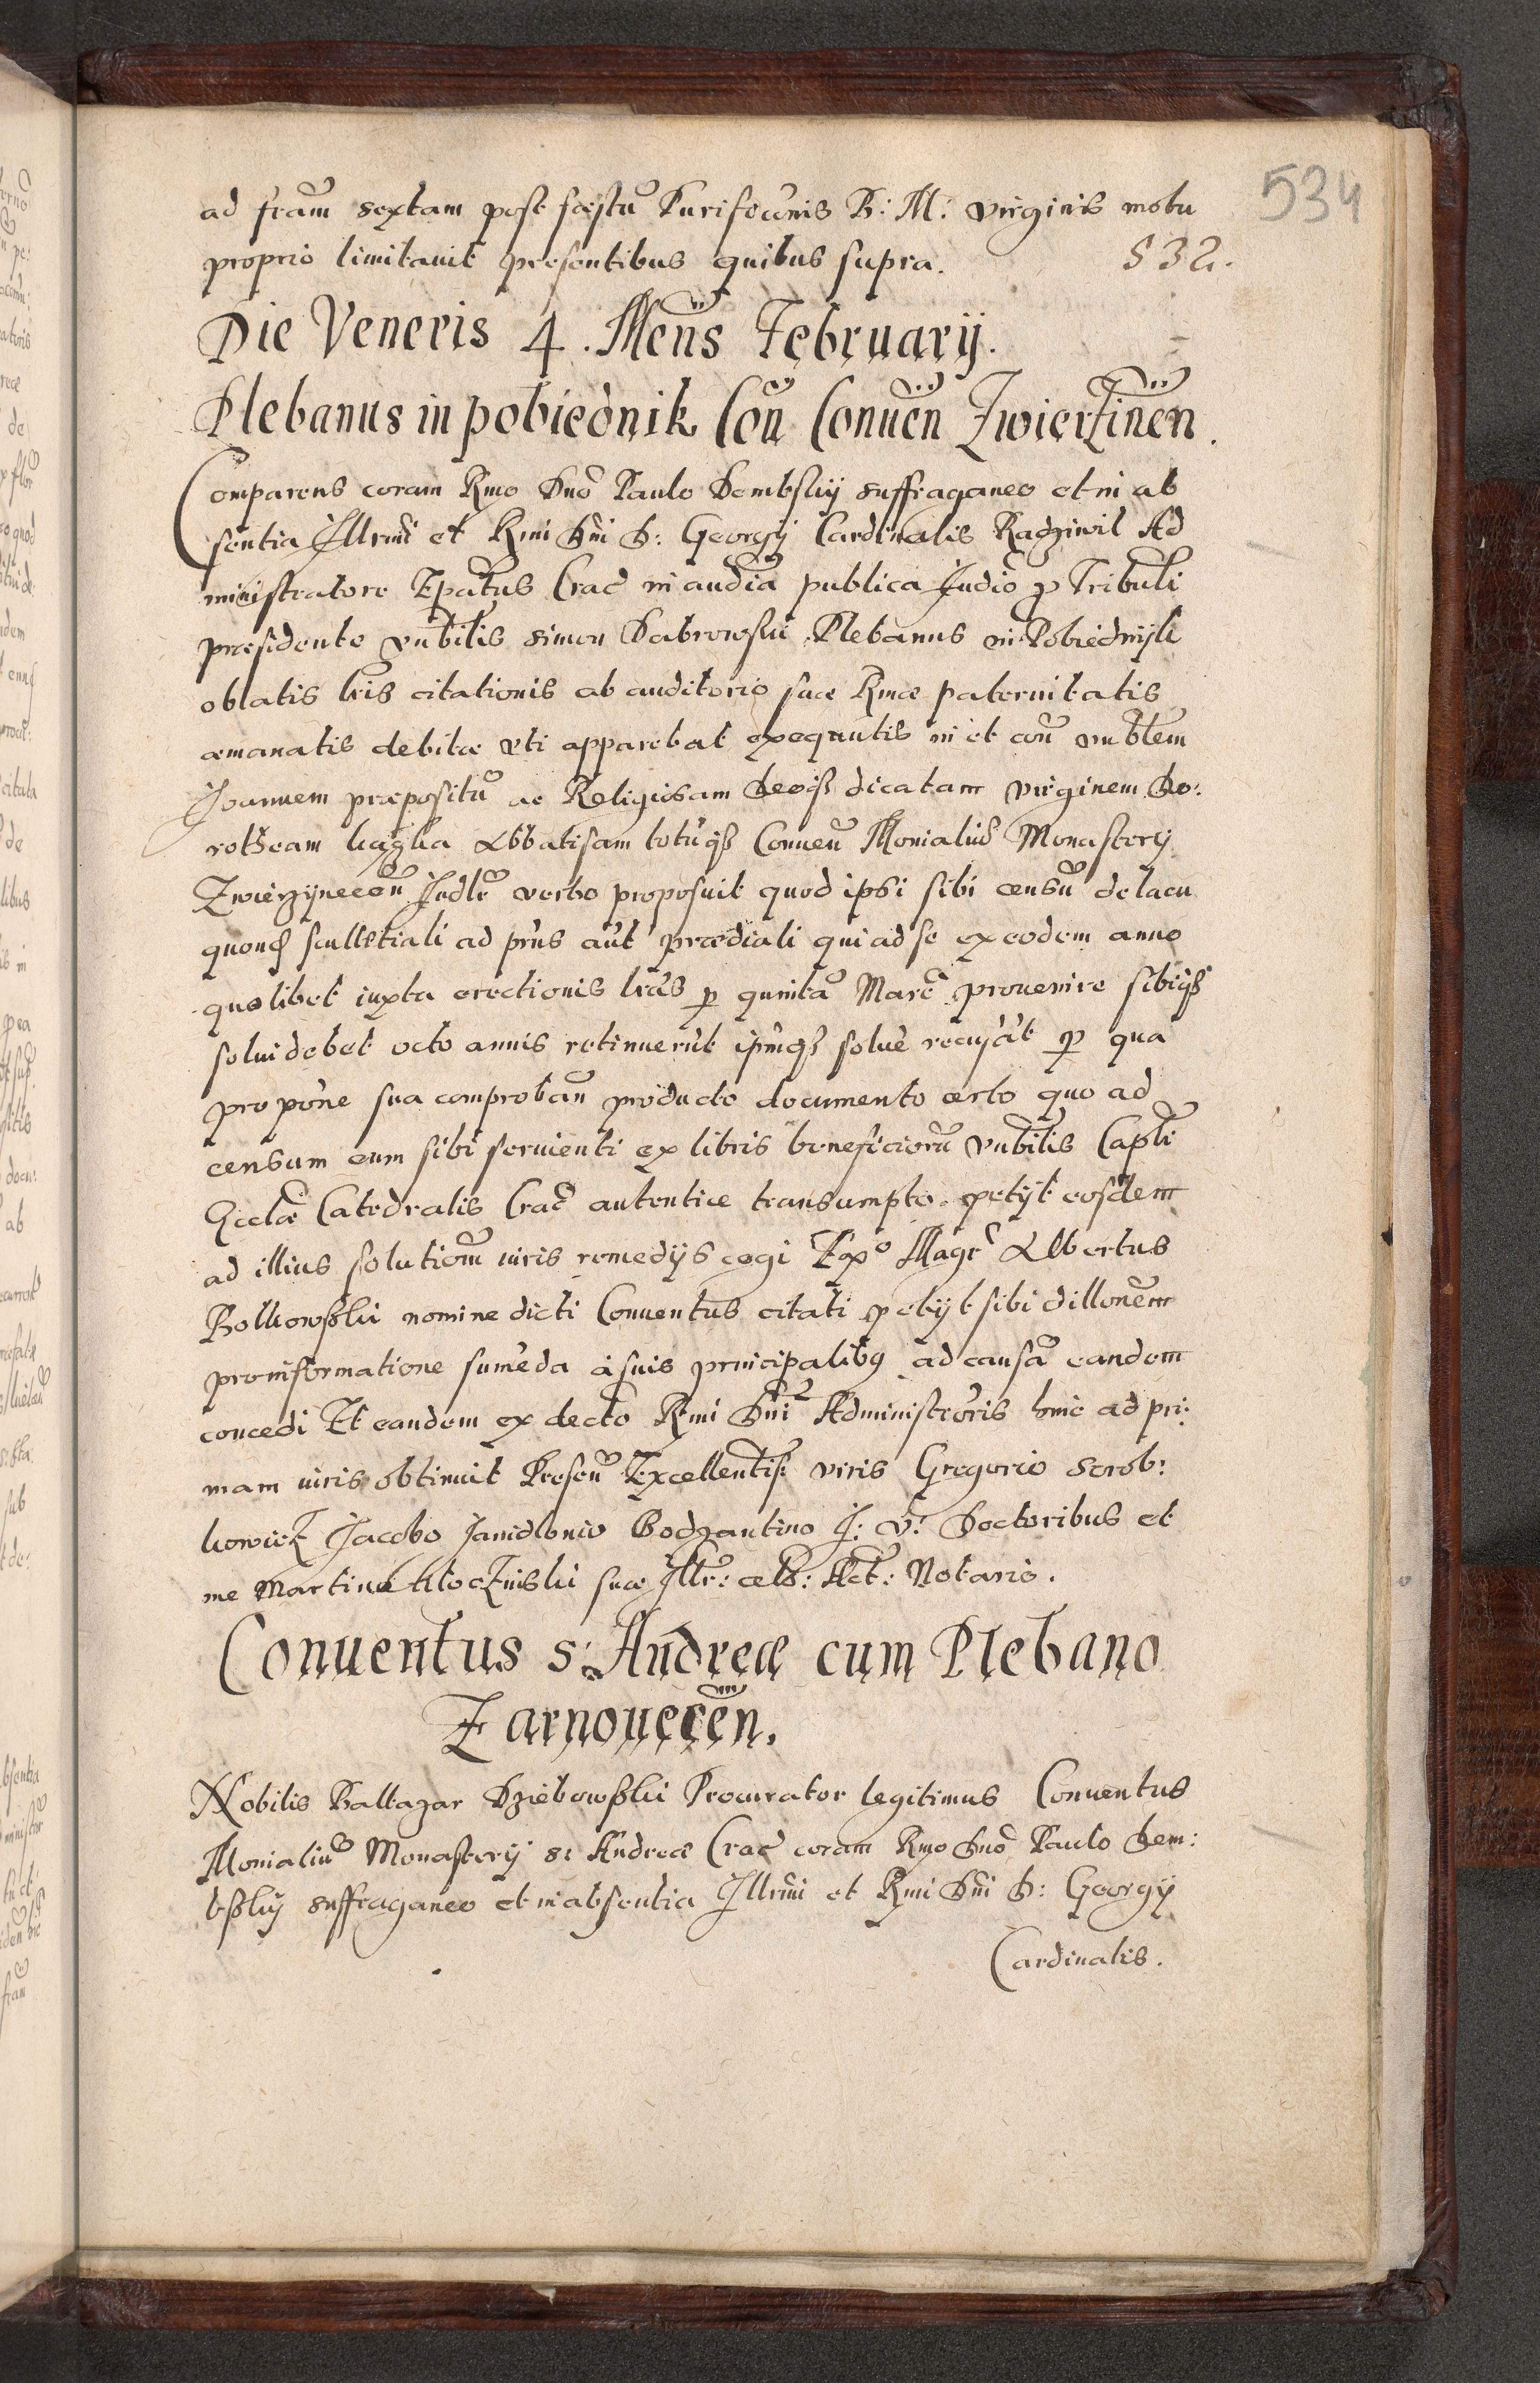 534
ad feriam̃ sextam post festũ Purificõnis B: M: virginis motu
proprio limitauit presentibus quibus supra. 532.
Die Veneris 4. Mens̃ February.
Plebanus in pobiednik Con̄ Conuen̄ Zwierzinen̄.
Comparens coram Rmo Dno Paulo Dembskij suffraganeo et in ab
sentia Illrmi et Rmi Dni D: Georgij Cardinalis Radziwil Ad
ministratore Epatus Crac̃ in audia publica Judio p Tribuli
præsidente vnbilis simon Dabrowski Plebanus in Pobiednijk
oblatis lr̃is citationis ab auditorio suæ Rmæ paternitatis
æmanatis debitæ vti apparebat exequutis in et con̄ vnblem
Joannem præpositũ ac Religiosam deoqȝ dicatam virginem Do:
rotheam kaska Abbatisam totũqȝ Conuen̄ Monialiũ Monastery
Zwierzynecen̄ Judlr verbo proposuit quod ipsi sibi censũ de lacu
quond scultetiali ad prñs aũt prædiali qui ad se ex eodem anno
quolibet iuxta erectionis lr̃as p quintã Marc̃ prouenire sibiqȝ
solui debet octo annis retinuerũt ipmqȝ solue recusãt p qua
propõne sua comproban̄ producto documento certo quo ad
censum eum sibi seruienti ex libris beneficiorũ vnbilis Capli
Ecclæ Catedralis Crac̃ autentice transumpto petijt eosdem
ad illius solutionem̃ iuris remedijs cogi Exº Magr̃ Albertus
Bolkowßki nomine dicti Conuentus citati petijt sibi dillonem̃
pro informatione sumẽda a suis principalibȝ ad causã eandem
concedi Et eandem ex decto Rmi Dni Administroris hinc ad pri:
mam iuris obtinuit Presen̄ Excellentiß: viris Gregorio Scrob:
kowicz Jacobo Janidlouio Bodzantino J: V: Doctoribus et
me Martino Kloczinski suæ Illr: cels: Act: Notario.
Conuentus S: Andreæ cum Plebano
Zarnouecen̄.
Nobilis Baltazar Dziebowßki Procurator legitimus Conuentus
Monialiũ Monastery S: Andreæ Crac̃ coram Rmo Dno Paulo Dem:
bßkij suffraganeo et in absentia Illrmi et Rmi Dni D: Georgij
Cardinalis.